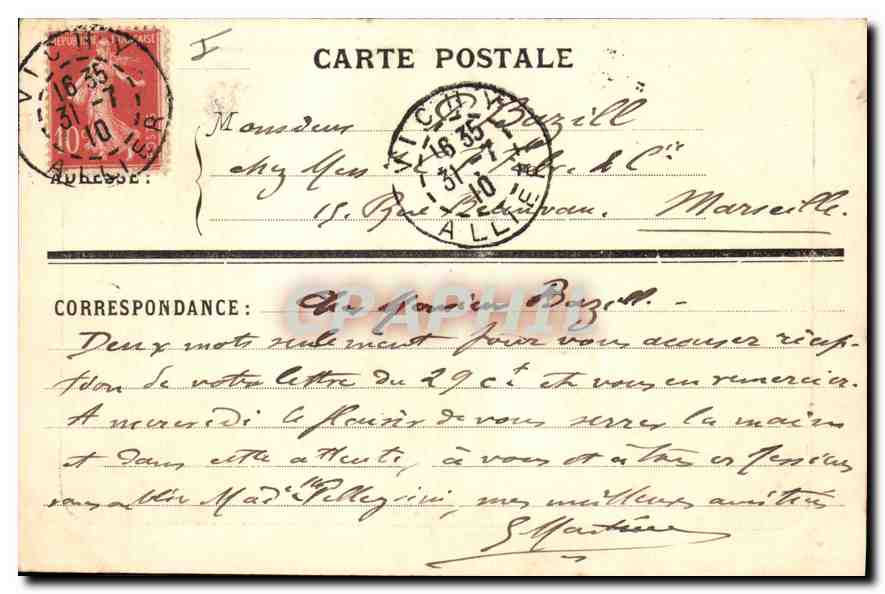 REPUBLIQUE FRANÇAISE
10
VICHY
16 35
31 - 7
10
ALLIER
CARTE POSTALE
VICHY
16 35
31 - 7
10
ALLIER
ADRESSE :
Monsieur Bazill
chez Mess & Cie
15, Rue Marseille.
CORRESPONDANCE : Cher Monsieur Bazill. -
Deux mots seulement pour vous accuser récep-
tion de votre lettre du 29 ct et vous en remercier.
A mercredi le plaisir de vous serrer la main
et dans cette attente, à vous et à
sans oublier Pellegrini, mes meilleures amitiés